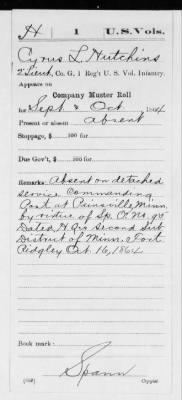 H 1 U.S. Vols.
Cyrus L Hutchins
2' Lieut, Co. G, 1 Reg't U. S. Vol. Infantry.
Appears on
Company Muster Roll
for Sept & Oct, 1864
Present or absent Absent
Stoppage, $ 100 for
Due Gov't, $ 100 for
Remarks: Absent on detached
service Commanding
Post at Painsville, Minn.
by virtue of Sp. O. No. 90
Dated, H Qrs Second Sub
District of Minn. Fort
Ridgley Oct. 16, 1864
Book mark:
Spann
(358) Copyist